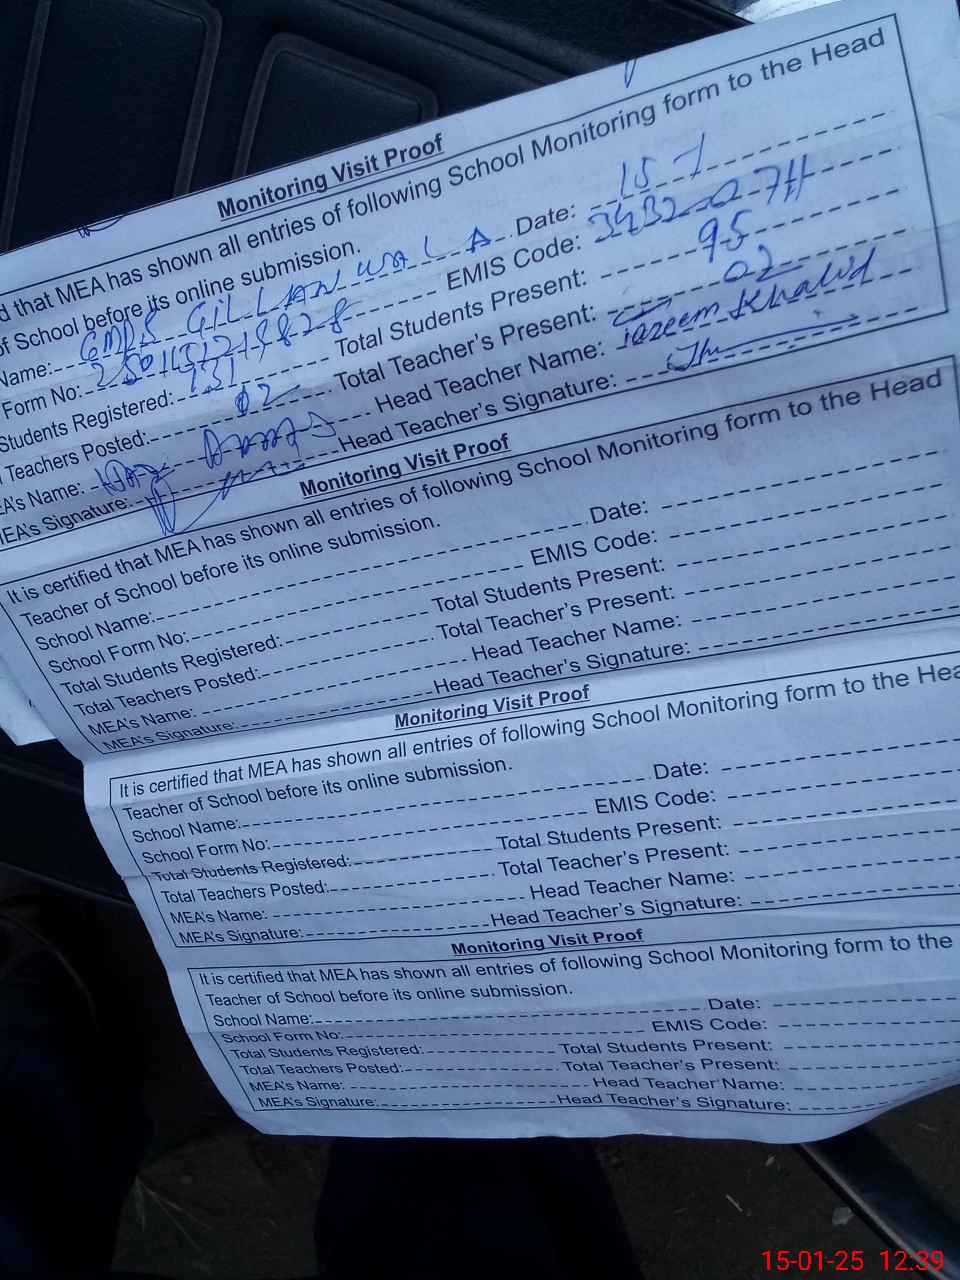 Monitoring Visit Proof
d that MEA has shown all entries of following School Monitoring form to the Head
of School before its online submission.
Name: GMPS GILLANWALA Date: 15-1
Form No: EMIS Code:
Students Registered: 131 Total Students Present: 95
Teachers Posted: 02 Total Teacher's Present: 02
EA's Name: Head Teacher Name: Khalid
MEA's Signature: Head Teacher's Signature:
Monitoring Visit Proof
It is certified that MEA has shown all entries of following School Monitoring form to the Head
Teacher of School before its online submission.
School Name: Date:
School Form No: EMIS Code:
Total Students Registered: Total Students Present:
Total Teachers Posted: Total Teacher's Present:
MEA's Name: Head Teacher Name:
MEA's Signature: Head Teacher's Signature:
Monitoring Visit Proof
It is certified that MEA has shown all entries of following School Monitoring form to the Hea
Teacher of School before its online submission.
School Name: Date:
School Form No: EMIS Code:
Total Students Registered: Total Students Present:
Total Teachers Posted: Total Teacher's Present:
MEA's Name: Head Teacher Name:
MEA's Signature: Head Teacher's Signature:
Monitoring Visit Proof
It is certified that MEA has shown all entries of following School Monitoring form to the
Teacher of School before its online submission.
School Name: Date:
School Form No: EMIS Code:
Total Students Registered: Total Students Present:
Total Teachers Posted: Total Teacher's Present:
MEA's Name: Head Teacher Name:
MEA's Signature: Head Teacher's Signature:
15-01-25 12:39